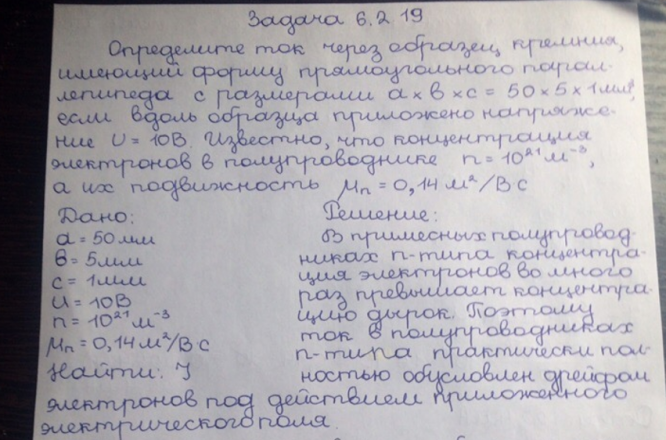 Задача 6.2.19
Определите ток через образец кремния,
имеющий форму прямоугольного парал-
лепипеда с размерами а×в×с = 50×5×1мм³,
если вдоль образца приложено напряже-
ние U = 10В. Известно, что концентрация
электронов в полупроводнике n = 10²¹ м⁻³,
а их подвижность μn = 0,14 м²/В·с
Дано: Решение:
а = 50мм В примесных полупровод-
в = 5мм никах n-типа концентра-
с = 1мм ция электронов во много
U = 10В раз превышает концентра-
n = 10²¹ м⁻³ цию дырок. Поэтому
μn = 0,14 м²/В·с ток в полупроводниках
Найти: J n-типа практически пол-
ностью обусловлен дрейфом
электронов под действием приложенного
электрического поля.